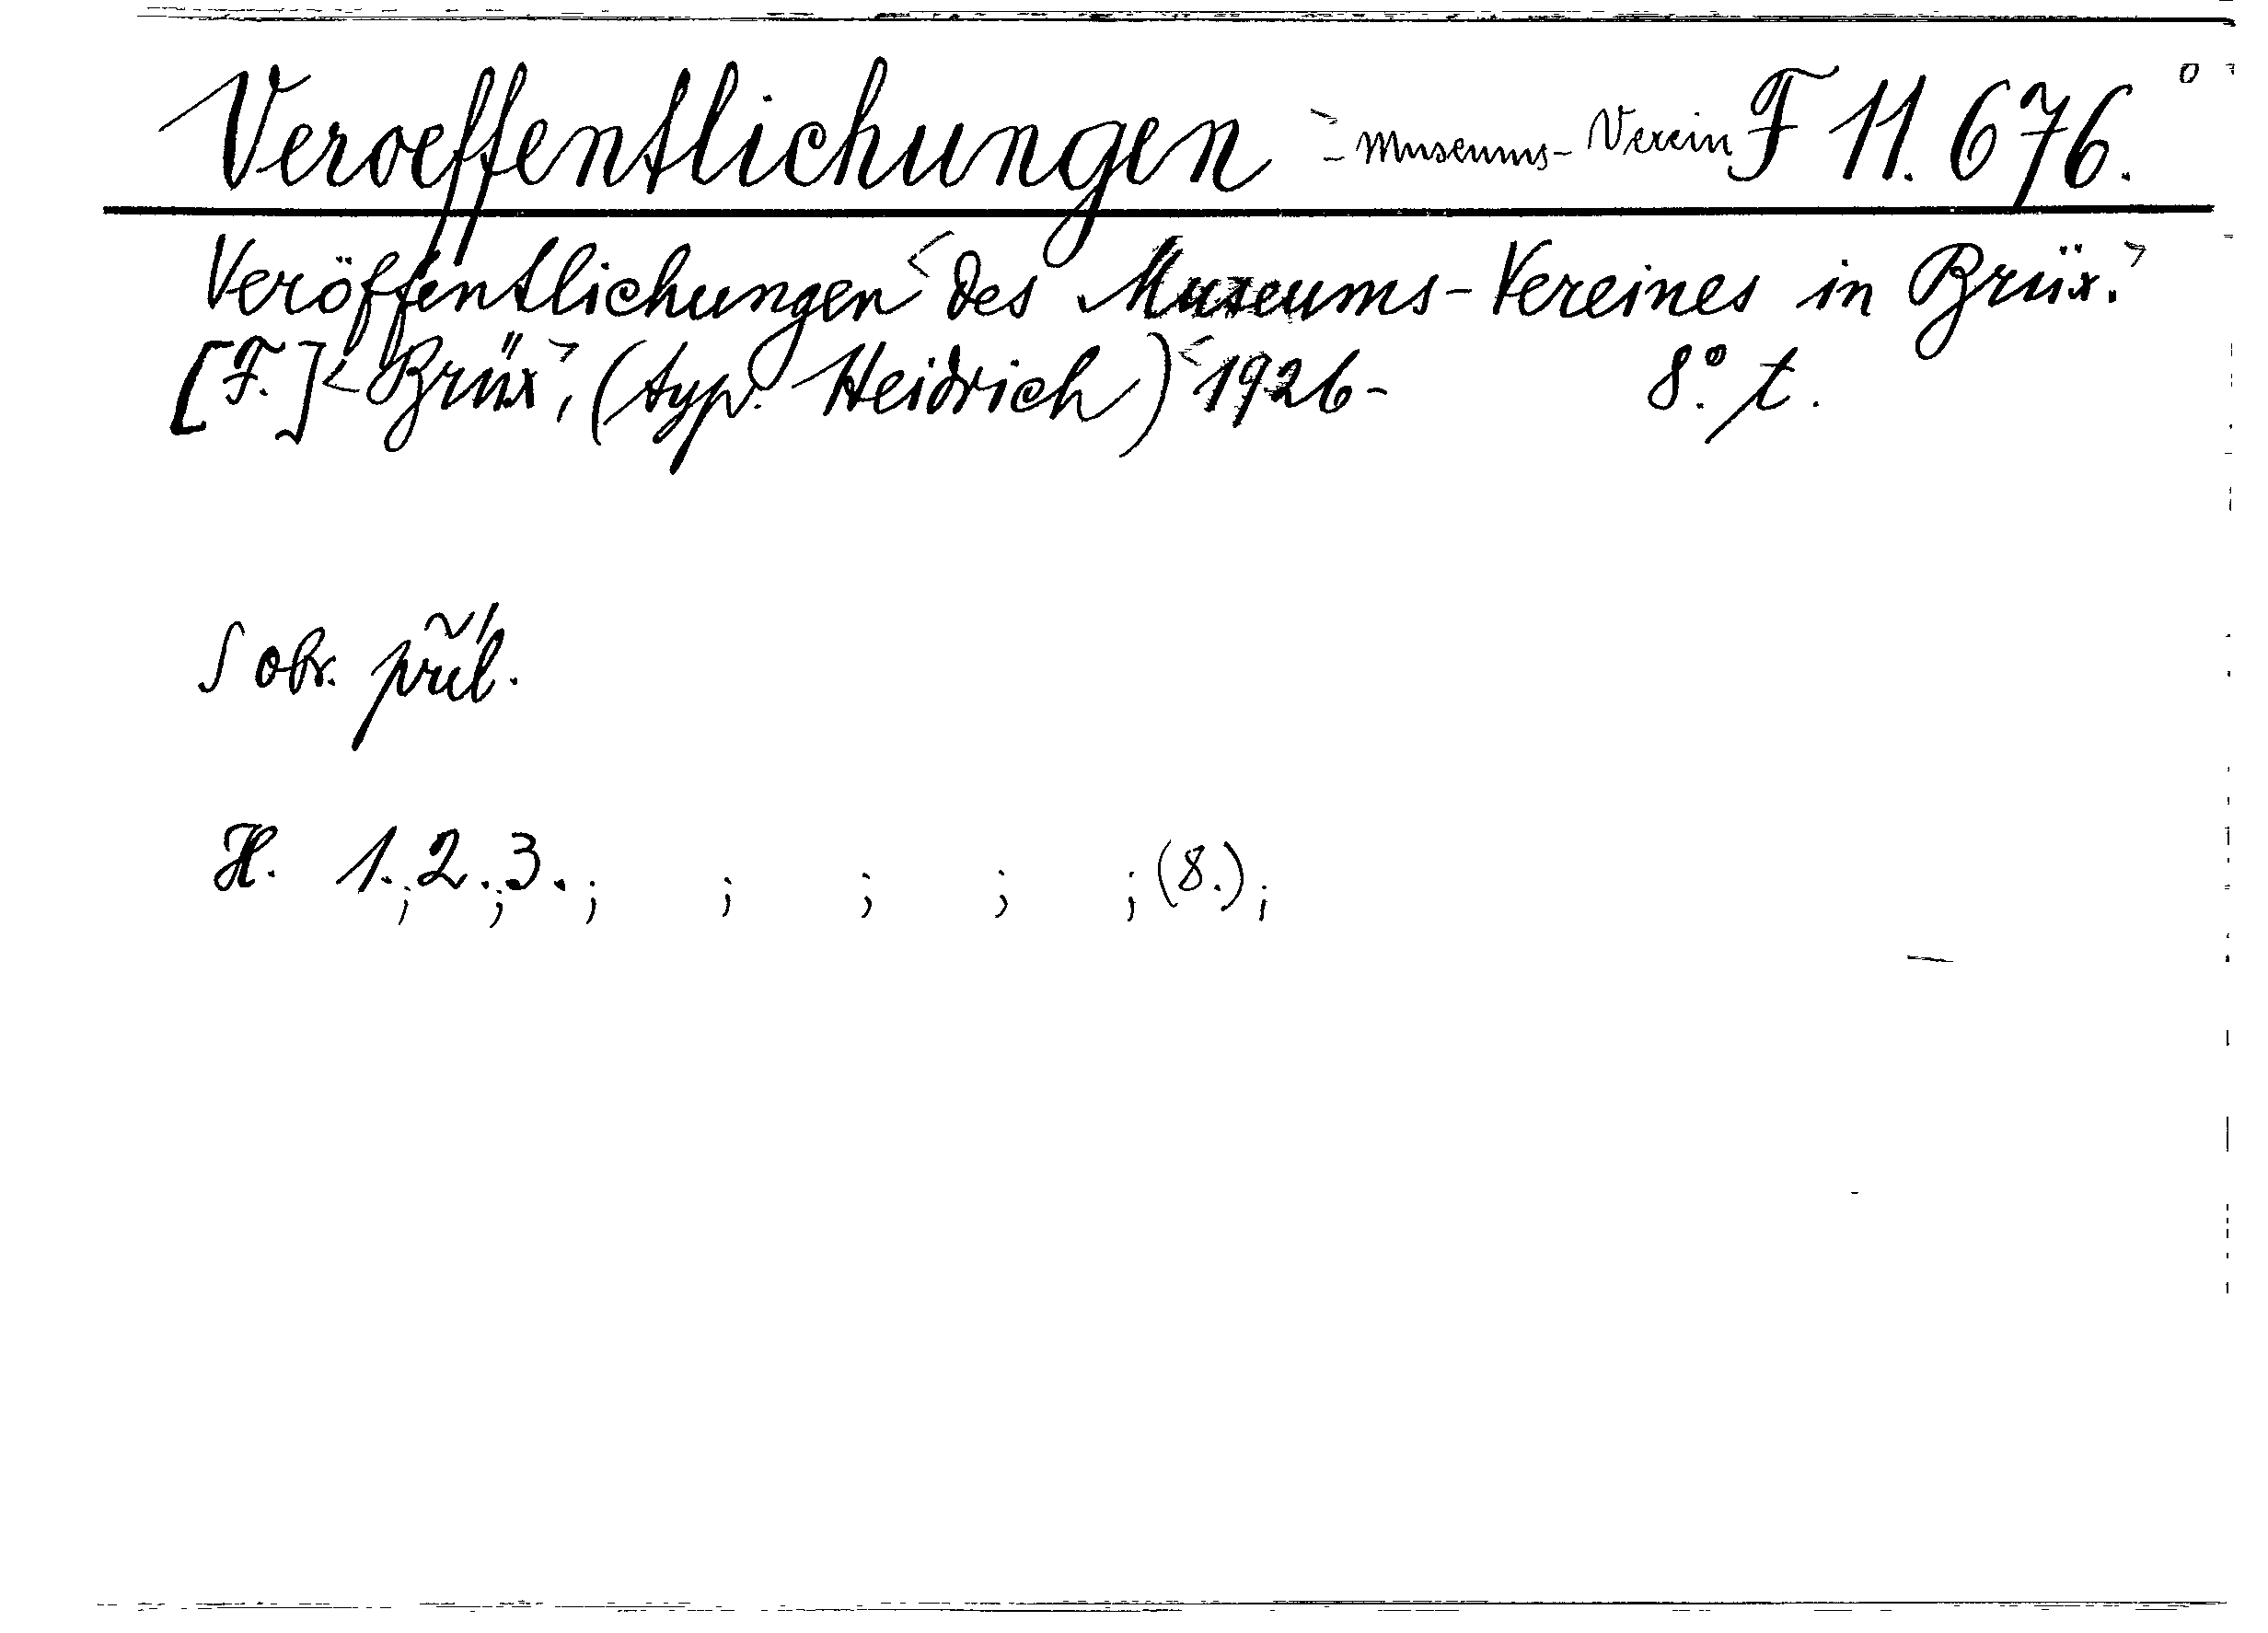 Veroeffentlichungen - Museums-Verein F 11.676.
Veröffentlichungen < des Museums-Vereines in Brüx. >
[F.] < Brüx >, (typ. Heidrich) < 1926- 8°. t.
S obr. příl.
H. 1.; 2.; 3.; ; ; ; ; (8.);